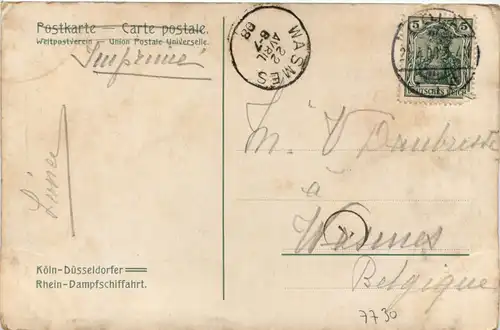 Postkarte — Carte postale.
Weltpostverein — Union Postale Universelle.
Imprimé
WASMES
22
AVRIL
6-7
08
5 5
DEUTSCHES REICH
M. V
à
Wasmes
Belgique
Köln-Düsseldorfer
Rhein-Dampfschiffahrt.
7730